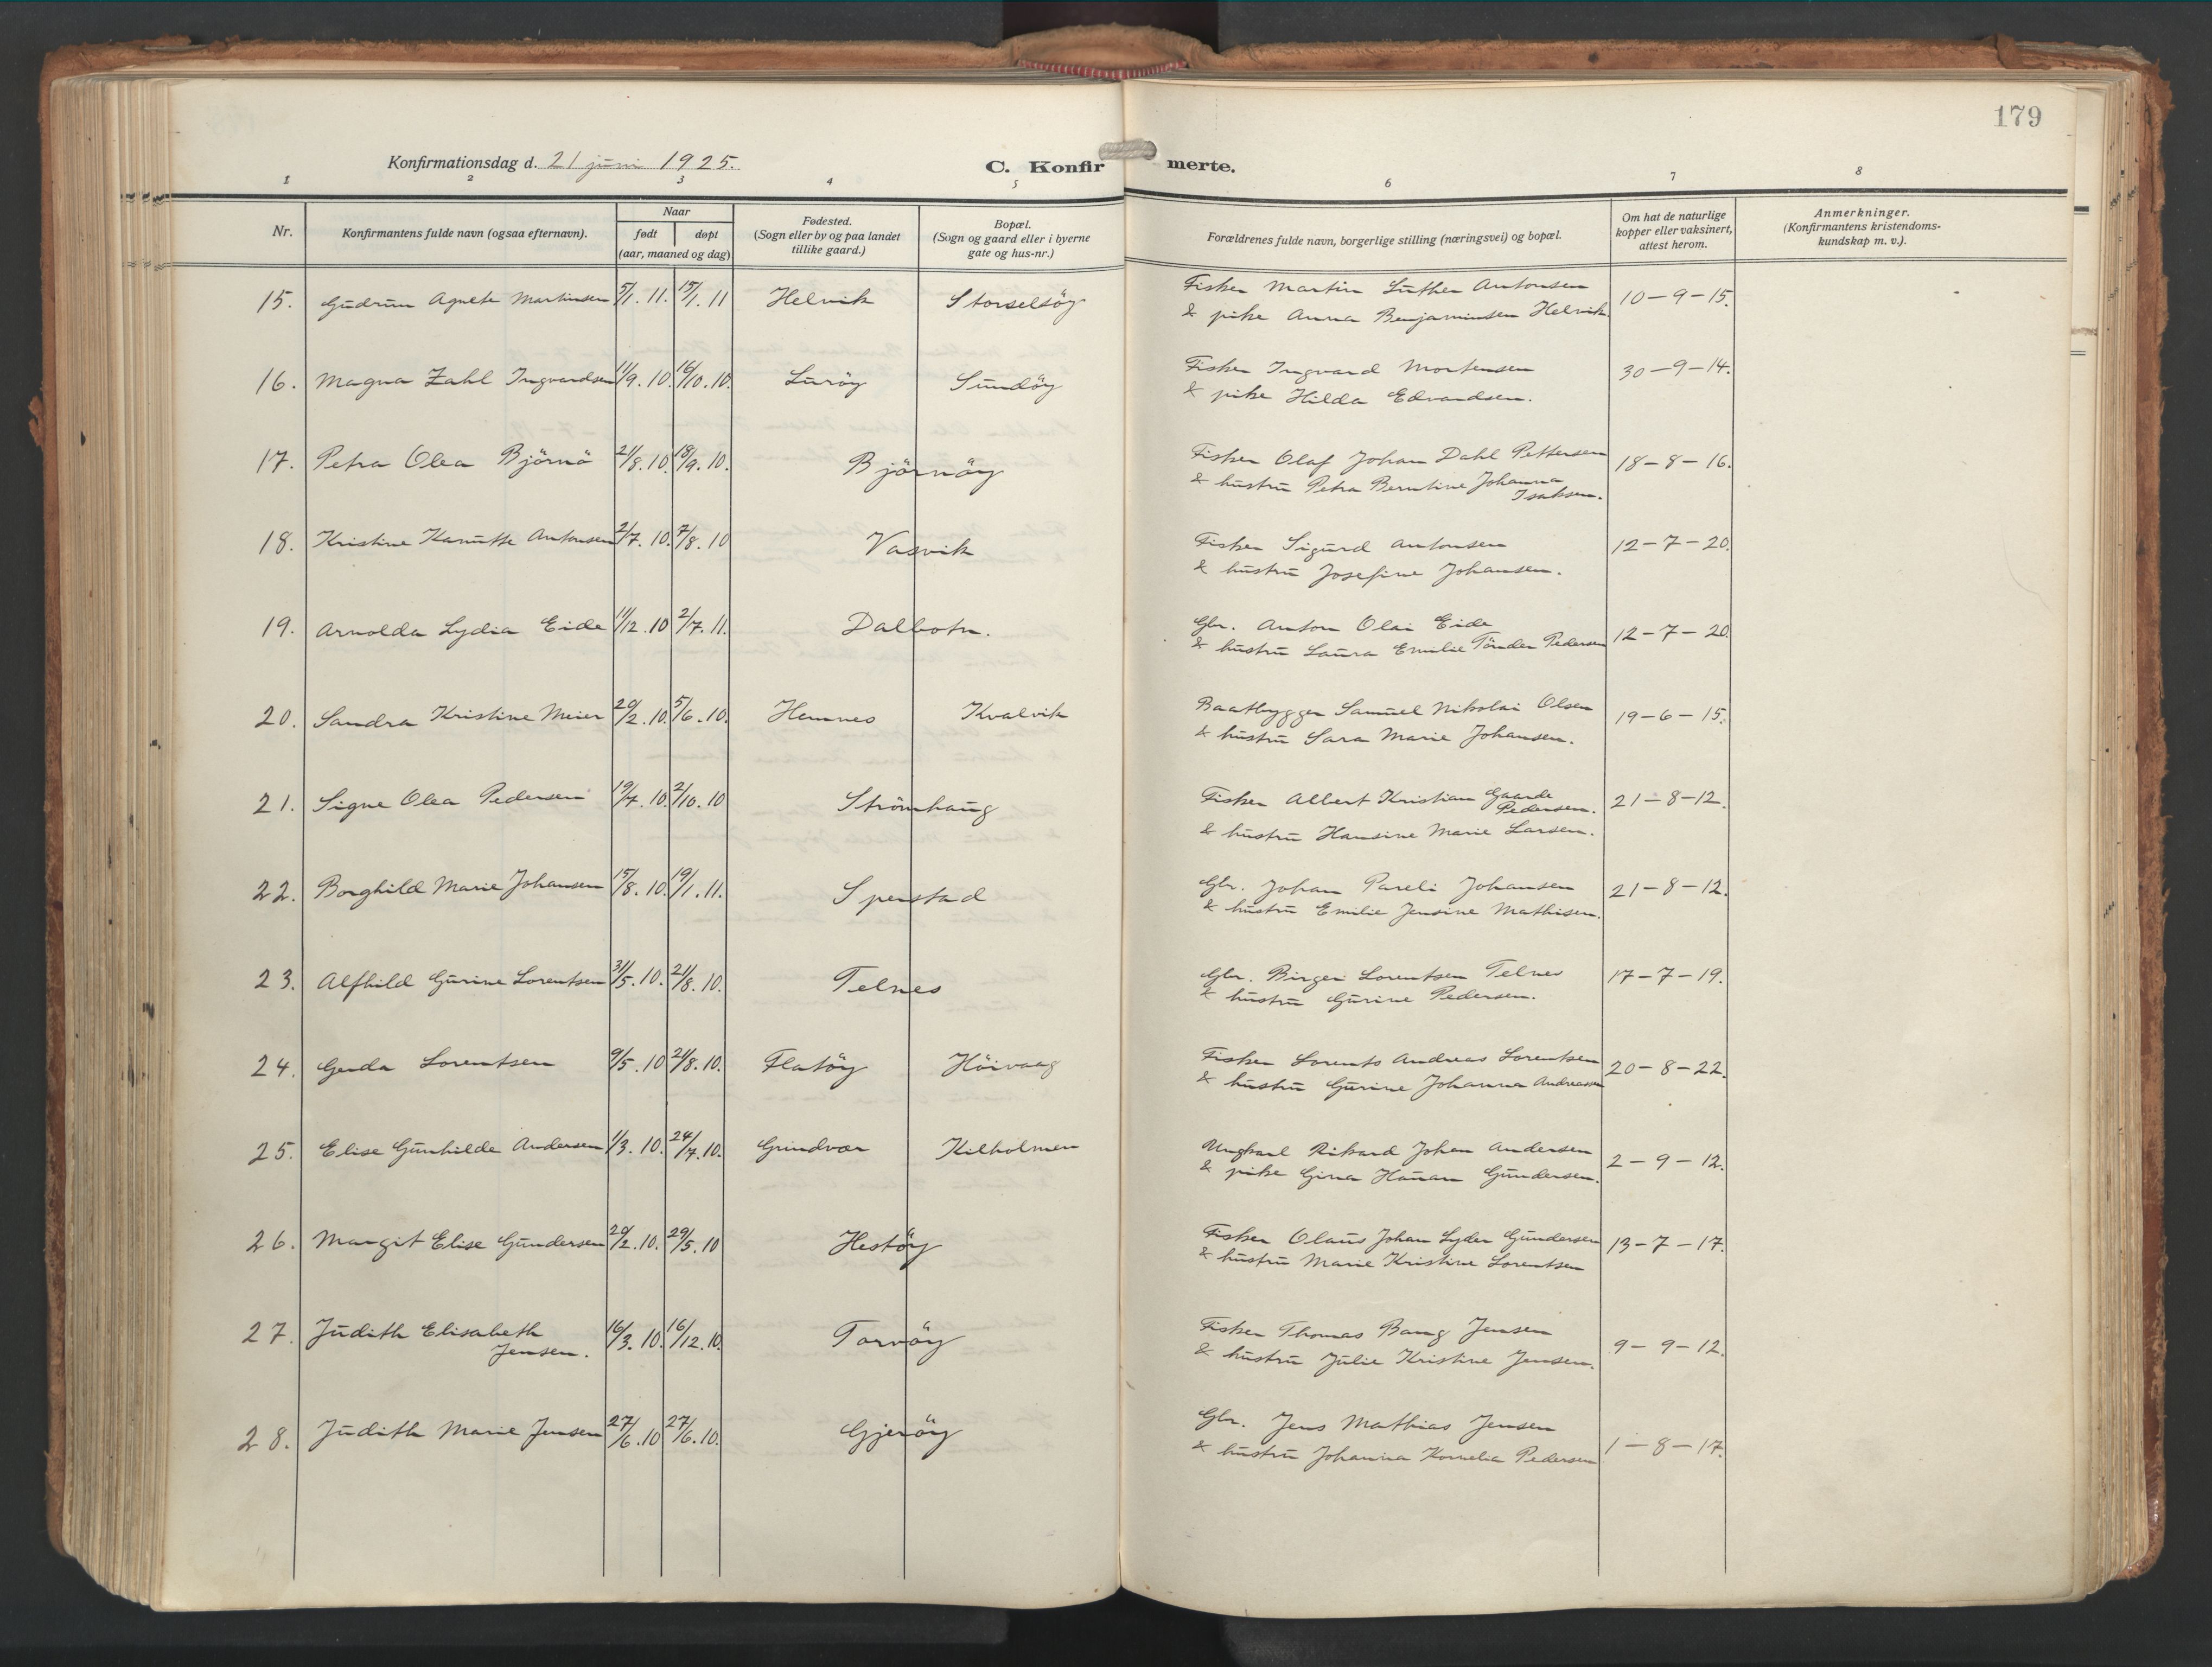 179
Konfirmationsdag d. 21 juni 1925.
C. Konfirmerte.
1 2 3 4 5 6 7 8
Nr.
Konfirmantens fulde navn (ogsaa efternavn).
Naar
født døpt
(aar, maaned og dag)
Fødested.
(Sogn eller by og paa landet
tillike gaard.)
Bopæl.
(Sogn og gaard eller i byerne
gate og hus-nr.)
Forældrenes fulde navn, borgerlige stilling (næringsvei) og bopæl.
Om hat de naturlige
kopper eller vaksinert,
attest herom.
Anmerkninger.
(Konfirmantens kristendoms-
kundskap m. v.).
15. Gudrun Agnete Martinsen 5/1. 11. 15/1. 11 Helvik Storselsöy
Fisker Martin Luther Antonsen
& pike Anna Benjaminsen Helvik. 10-9-15.
16. Magna Zahl Ingvardsen 11/9. 10. 16/10. 10. Luröy Sundöy
Fisker Ingvard Mortensen
& pike Hilda Edvardsen. 30-9-14.
17. Petra Olea Björnö 21/8. 10. 18/9. 10. Björnöy
Fisker Olaf Johan Dahl Pettersen
& hustru Petra Berntine Johanna
Isaksen. 18-8-16.
18. Kristine Kanutte Antonsen 2/7. 10. 7/8. 10 Vasvik
Fisker Sigurd Antonsen
& hustru Josefine Johansen. 12-7-20.
19. Arnolda Lydia Eide 11/12. 10 2/7. 11. Dalbotn.
Gbr. Anton Olai Eide
& hustru Laura Emilie Tönder Pedersen 12-7-20.
20. Sandra Kristine Meier 20/2. 10. 5/6. 10. Hemnes Kvalvik
Baatbygger Samuel Nikolai Olsen
& hustru Sara Marie Johansen. 19-6-15.
21. Signe Olea Pedersen 19/7. 10. 2/10. 10 Strömhaug
Fisker Albert Kristian Gaarde
Pedersen.
& hustru Hansine Marie Larsen. 21-8-12.
22. Borghild Marie Johansen 15/8. 10. 19/1. 11. Sperstad
Gbr. Johan Pareli Johansen
& hustru Emilie Jensine Mathisen. 21-8-12.
23. Alfhild Gurine Lorentsen 31/5. 10. 21/8. 10. Telnes
Gbr. Birger Lorentsen Telnes
& hustru Gurine Pedersen. 17-7-19.
24. Gerda Lorentsen 9/5. 10 21/8. 10. Flatöy Höivaag
Fisker Lorents Andreas Lorentsen
& hustru Gurine Johanna Andreassen 20-8-22.
25. Elise Gunhilde Andersen 1/3. 10. 24/7. 10. Grindvær Kilholmen
Ungkarl Rikard Johan Andersen
& pike Gina Gundersen. 2-9-12.
26. Margit Elise Gundersen 20/2. 10. 29/5. 10 Hestöy
Fisker Olaus Johan Lyder Gundersen
& hustru Marie Kristine Lorentsen 13-7-17.
27. Judith Elisabeth
Jensen. 16/3. 10. 16/12. 10. Torvöy
Fisker Thomas Bang Jensen
& hustru Julie Kristine Jensen. 9-9-12.
28. Judith Marie Jensen 27/6. 10 27/6. 10. Gjeröy
Gbr. Jens Mathias Jensen
& hustru Johanna Kornelia Pedersen 1-8-17.